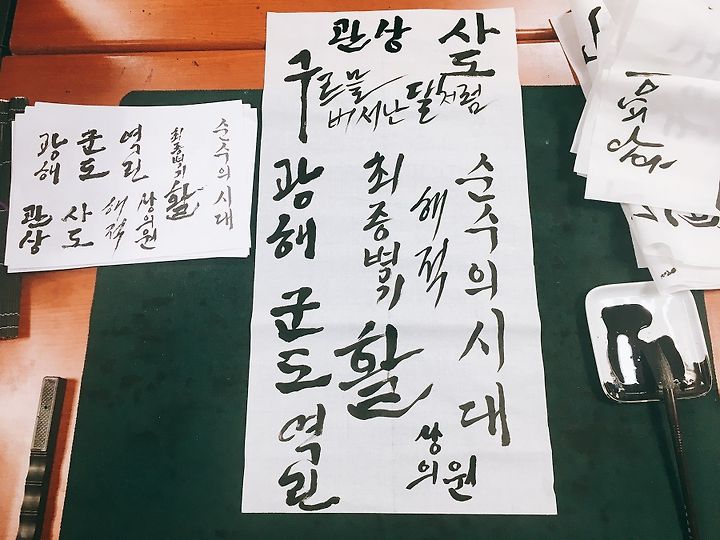 관상
사도
구르믈
버서난 달처럼
광해
최종병기
활
해적
순수의 시대
군도
역린
상의원
광해
군도
역린
최종병기
활
순수의 시대
관상
사도
해적
상의원